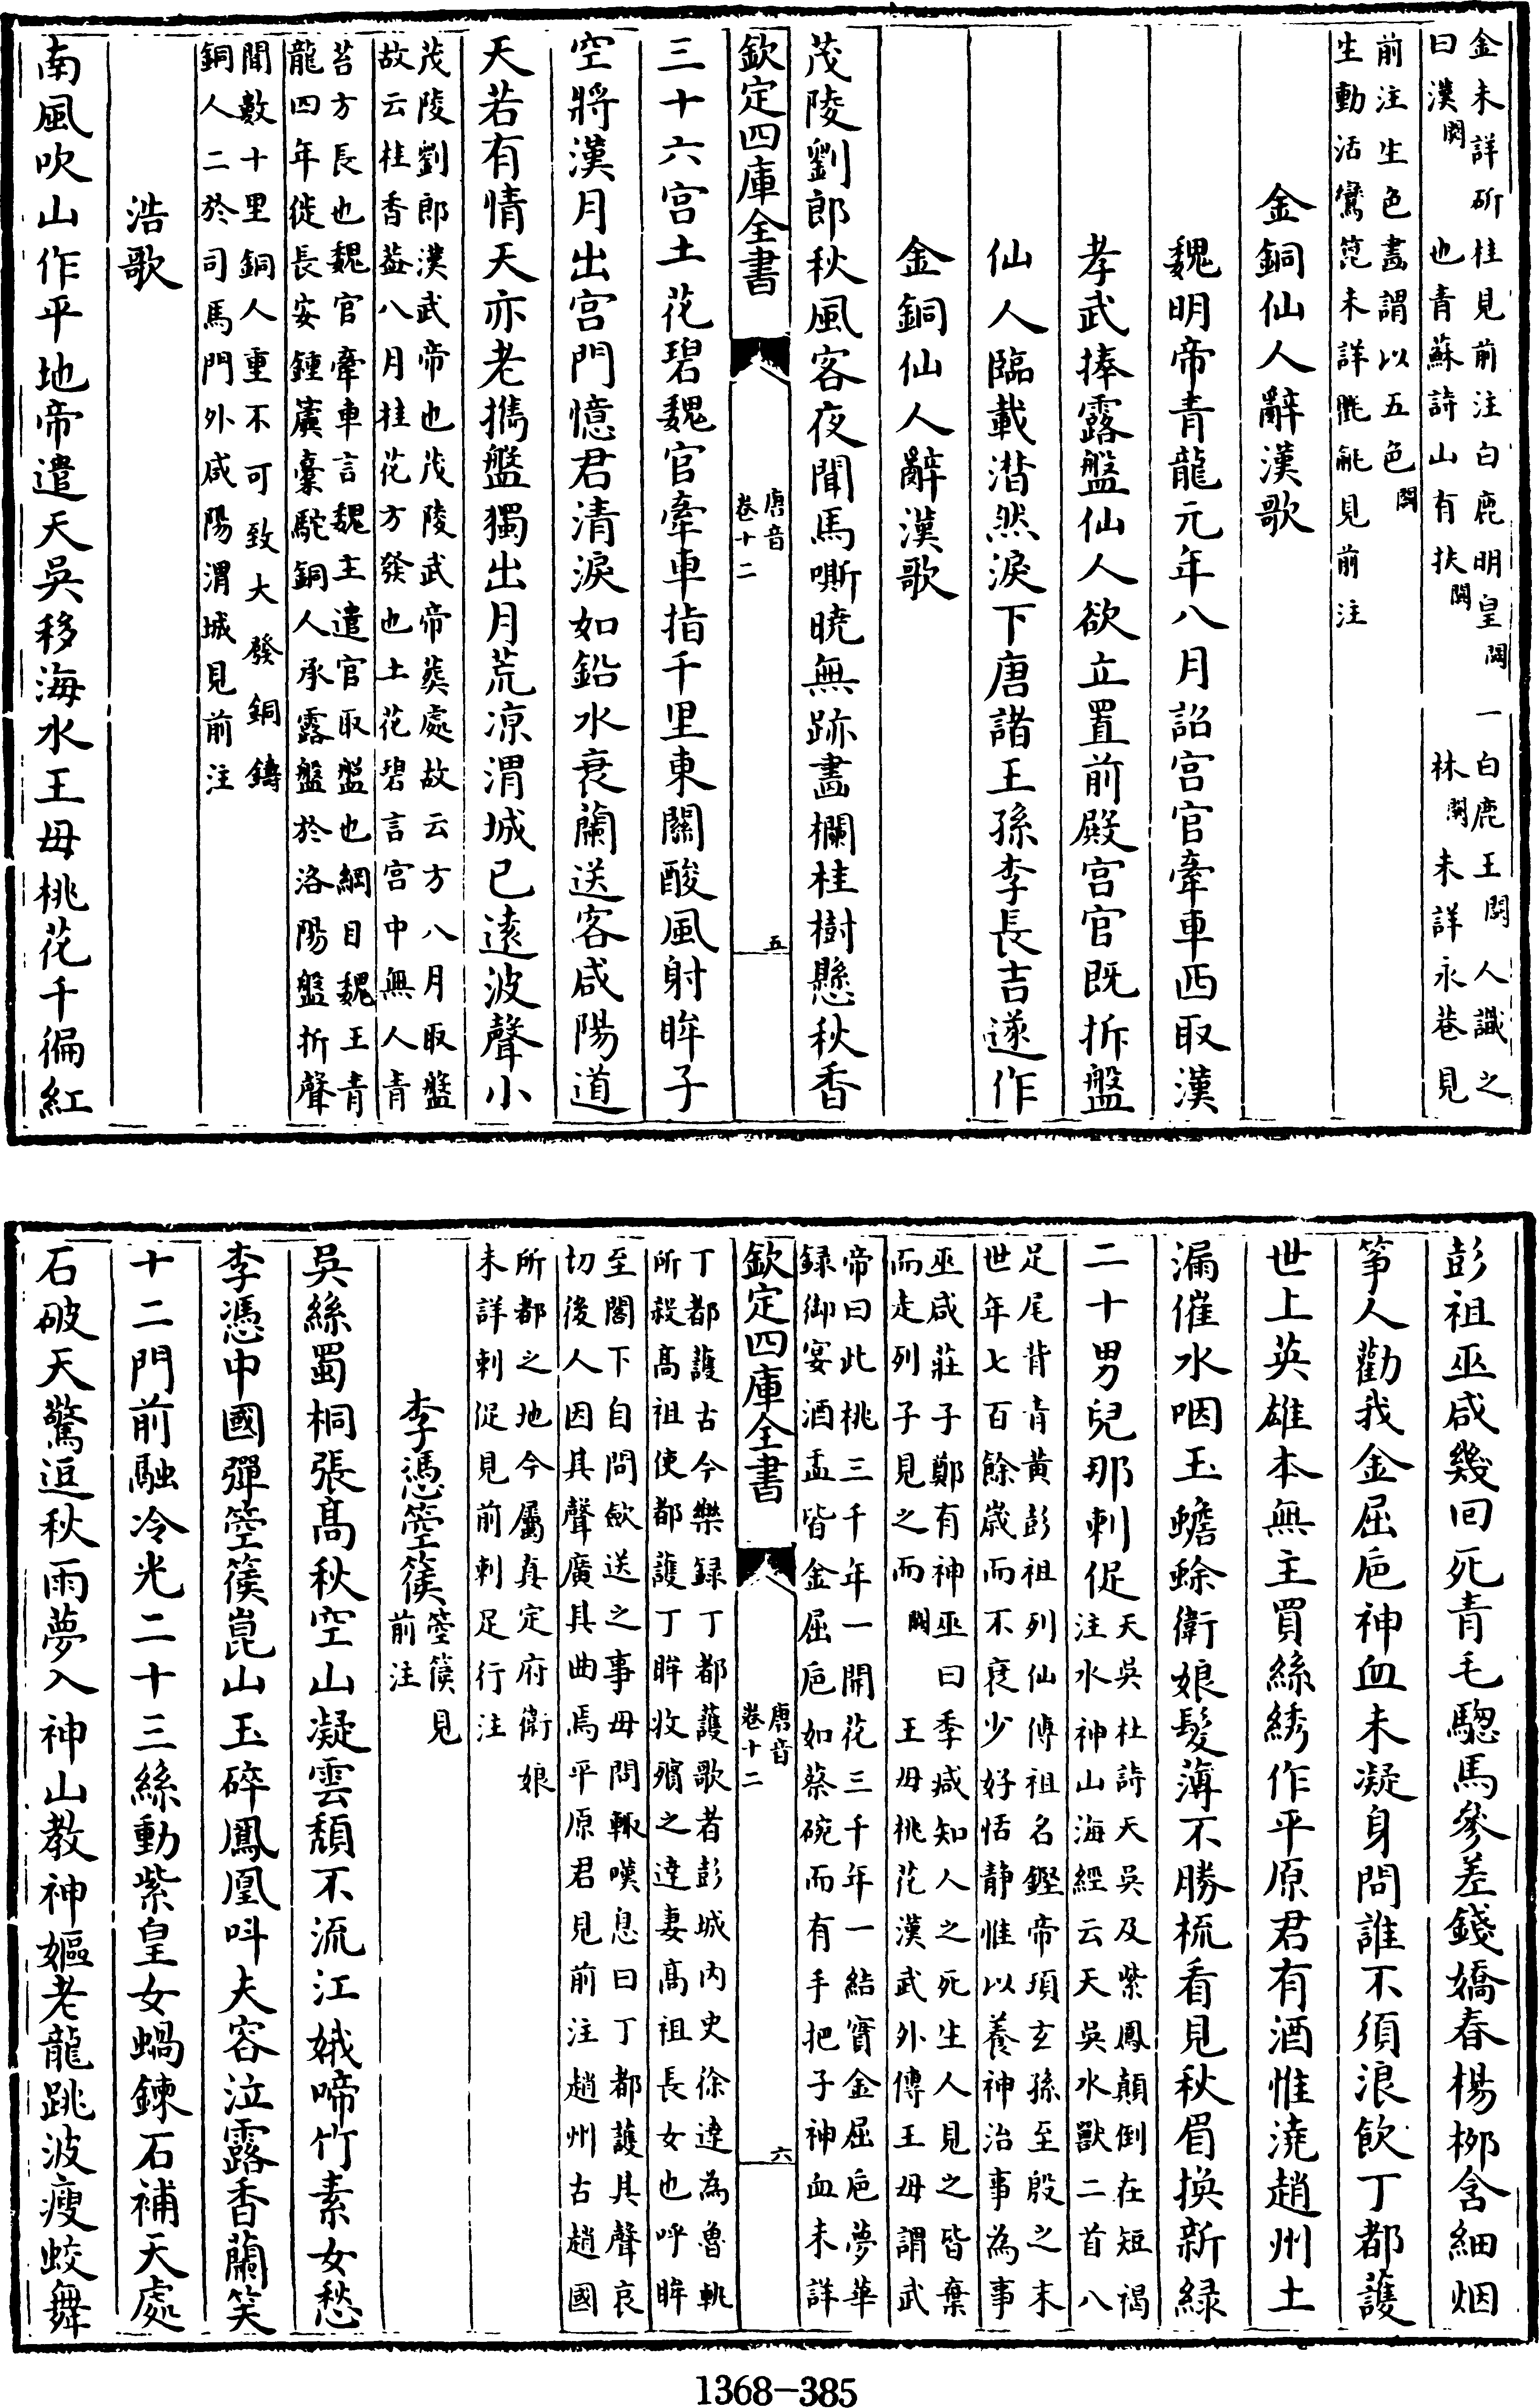 金未詳斫桂見前注白鹿明皇闕一白鹿王闕人識之
曰漢闕也青蘇詩山有扶闕林闕未詳永巷見
前注生色畫謂以五色闕
生動活鸞箆未詳毾㲪見前注
金銅仙人辭漢歌
魏明帝青龍元年八月詔宫官牽車西取漢
孝武捧露盤仙人欲立置前殿宫官既拆盤
仙人臨載潸然淚下唐諸王孫李長吉遂作
金銅仙人辭漢歌
茂陵劉郎秋風客夜聞馬嘶曉無跡畫欄桂樹懸秋香
欽定四庫全書
唐音
卷十二
五
三十六宫土花碧魏官牽車指千里東關酸風射眸子
空將漢月出宫門憶君清淚如鉛水衰蘭送客咸陽道
天若有情天亦老擕盤獨出月荒凉渭城已逺波聲小
茂陵劉郎漢武帝也茂陵武帝葬處故云方八月取盤
故云桂香葢八月桂花方發也土花碧言宫中無人青
苔方長也魏官牽車言魏主遣官取盤也綱目魏王青
龍四年徙長安鍾簴槖駝銅人承露盤於洛陽盤折聲
聞數十里銅人重不可致大發銅鑄
銅人二於司馬門外咸陽渭城見前注
浩歌
南風吹山作平地帝遣天吳移海水王母桃花千徧紅
彭祖巫咸幾回死青毛驄馬參差錢嬌春楊栁含細烟
筝人勸我金屈巵神血未凝身問誰不須浪飲丁都護
世上英雄本無主買絲綉作平原君有酒惟澆趙州土
漏催水咽玉蟾蜍衛娘髮薄不勝梳看見秋眉換新緑
二十男兒那刺促
天吳杜詩天吳及紫鳳顛倒在短褐
注水神山海經云天吳水獸二首八
足尾背青黄彭祖列仙傅祖名鏗帝頊玄孫至殷之末
世年七百餘嵗而不衰少好恬静惟以養神治事為事
巫咸莊子鄭有神巫曰季咸知人之死生人見之皆棄
而走列子見之而闕王母桃花漢武外傅王母謂武
帝曰此桃三千年一開花三千年一結實金屈巵夢華
録御宴酒盂皆金屈巵如蔡碗而有手把子神血未詳
欽定四庫全書
唐音
卷十二
六
丁都護古今樂録丁都護歌者彭城内史徐逵為魯軌
所殺髙祖使都護丁旿收殯之逵妻髙祖長女也呼旿
至閤下自問歛送之事毋問輙嘆息曰丁都護其聲哀
切後人因其聲廣其曲焉平原君見前注趙州古趙國
所都之地今屬真定府衛娘
未詳刺促見前刺足行注
李憑箜篌
箜篌見
前注
吳絲蜀桐張髙秋空山凝雲頽不流江娥啼竹素女愁
李憑中國彈箜篌崑山玉碎鳳凰呌夫容泣露香蘭笑
十二門前融冷光二十三絲動紫皇女蝸鍊石補天處
石破天驚逗秋雨夢入神山教神嫗老龍跳波瘦蛟舞
1368-385